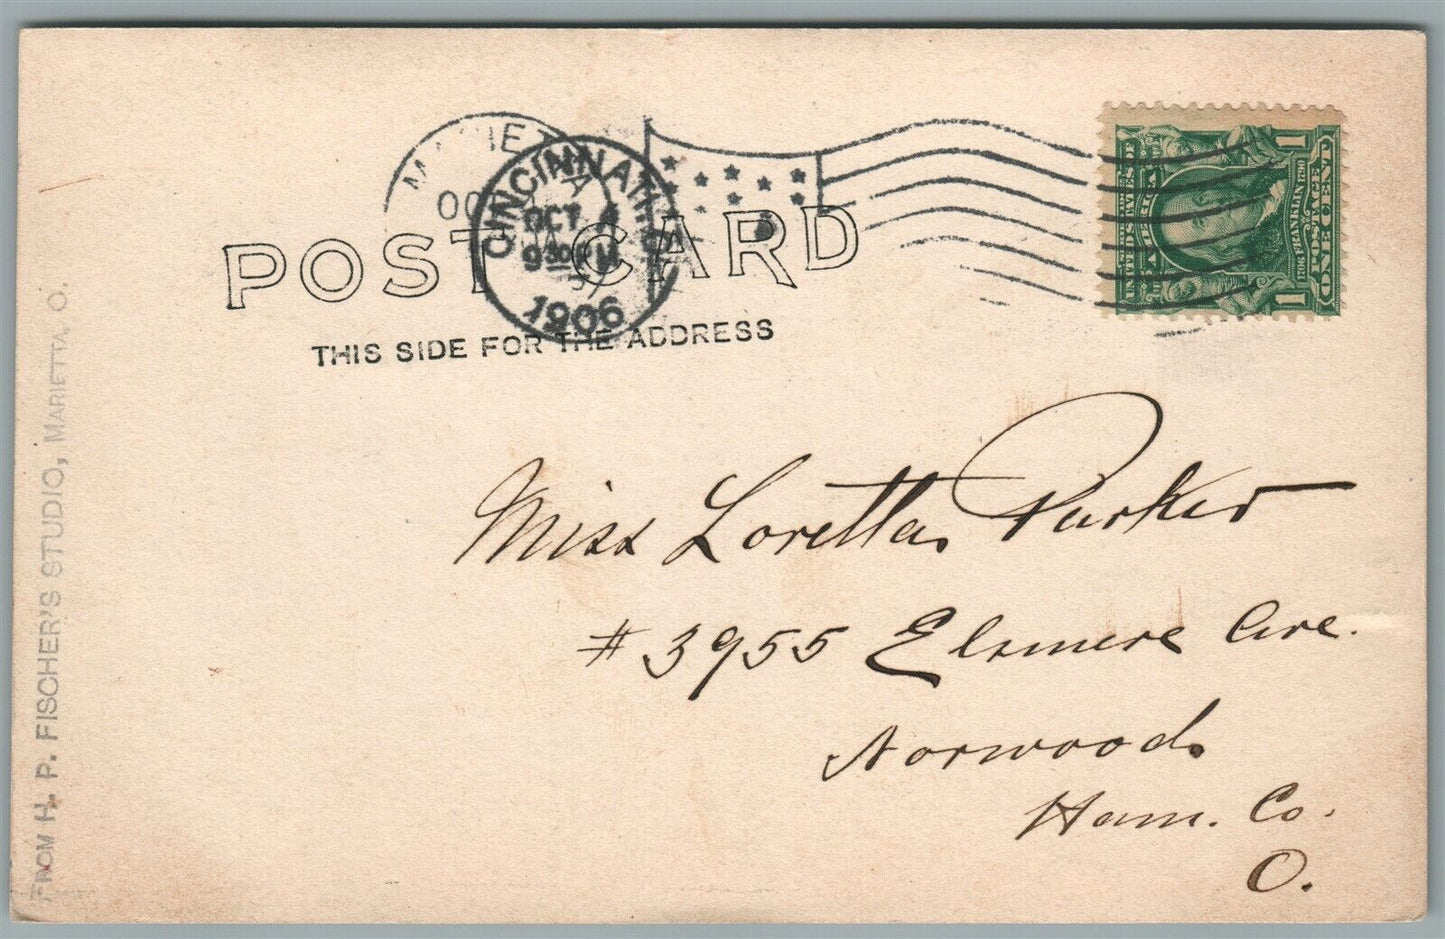 MARIETTA
OC
CINCINNATI
OCT 4
930
1906
POST CARD
THIS SIDE FOR THE ADDRESS
1 POSTAGE 1
ONE CENT
FRANKLIN
UNITED STATES OF
AMERICA
Miss Loretta Parker
# 3955 Elsmere Ave.
Norwood
Ham. Co.
O.
FROM H. P. FISCHER'S STUDIO, MARIETTA, O.